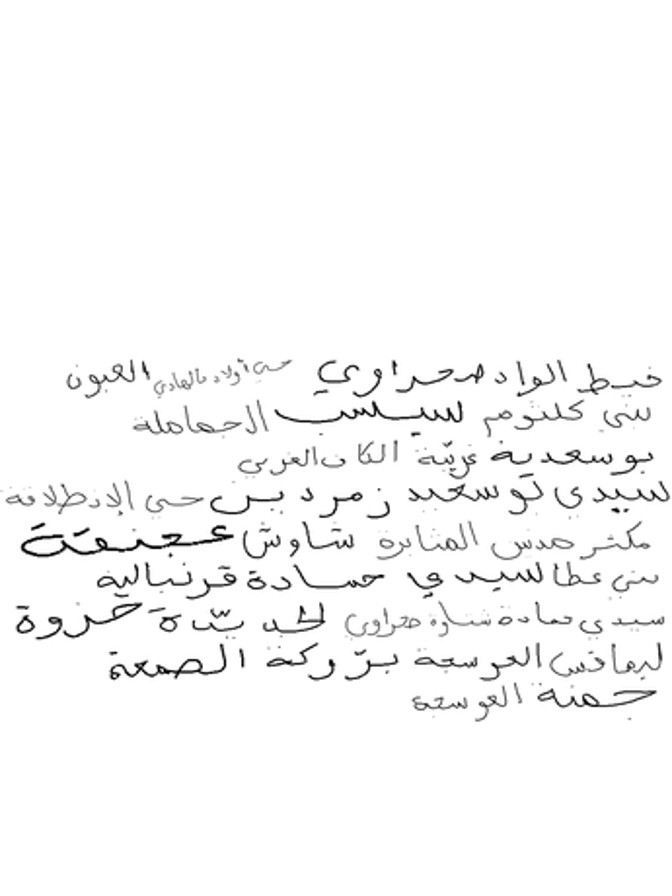 خيط الواد صحراوي حي أولاد بالهادي العيون
بني كلثوم سيسب الحماملة
بوسعدية غريبة الكاف الغربي
سيدي توسعيد زمردين حي الإنطلاقة
مكثر حدس المنابرة شاوش عجنقة
بني عطا لسيدي حمادة قرنبالية
سيدي حمادة شنارة صحراوي حزوة
العوسجة بروكة الصمعة
جمنة العوسجة